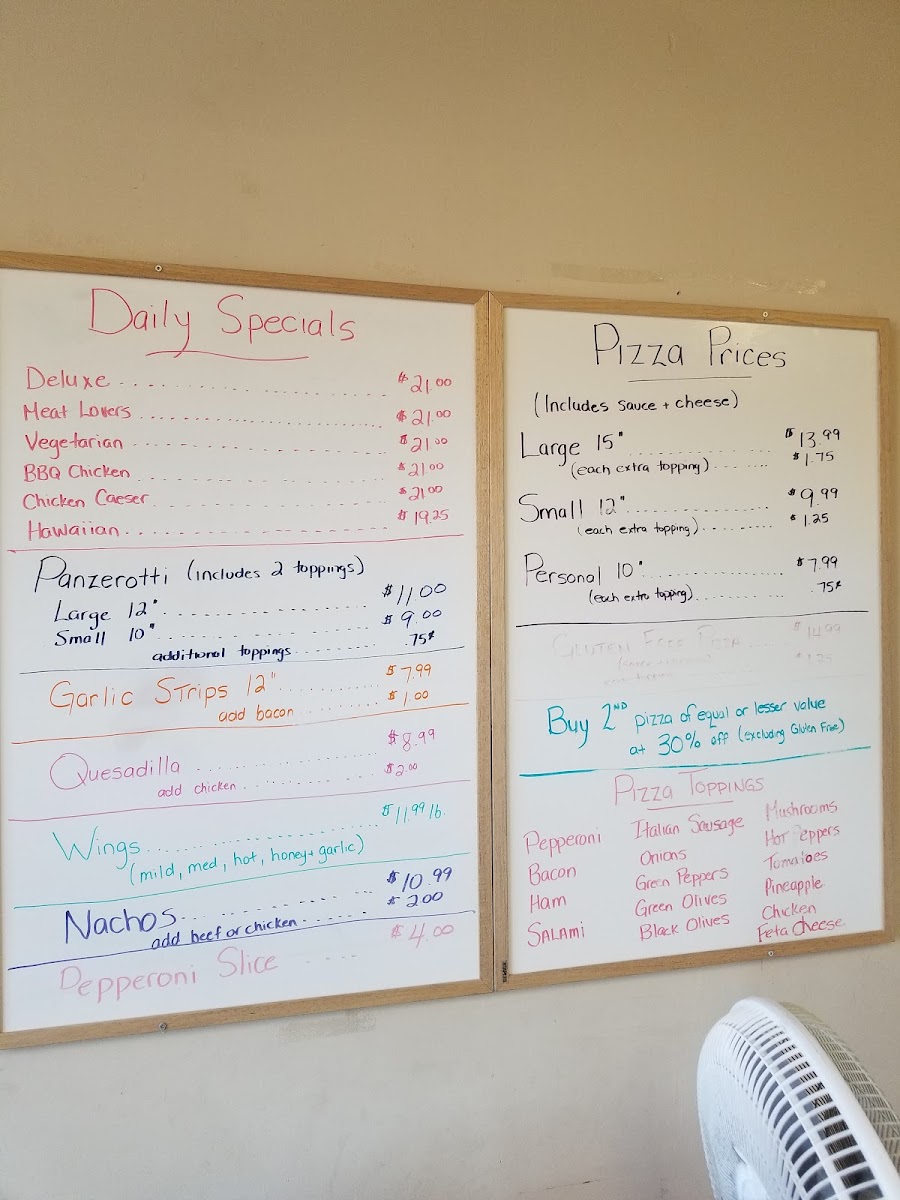 Daily Specials
Deluxe $21.00
Meat Lovers $21.00
Vegetarian $21.00
BBQ Chicken $21.00
Chicken Caeser $21.00
Hawaiian $19.25
Panzerotti (includes 2 toppings)
Large 12" $11.00
Small 10" $9.00
additional toppings .75¢
Garlic Strips 12" $7.99
add bacon $1.00
Quesadilla $8.99
add chicken $2.00
Wings $11.99 lb.
(mild, med, hot, honey + garlic)
Nachos $10.99
add beef or chicken $2.00
Pepperoni Slice $4.00
Pizza Prices
(Includes sauce + cheese)
Large 15" $13.99
(each extra topping) $1.75
Small 12" $9.99
(each extra topping) $1.25
Personal 10" $7.99
(each extra topping) .75¢
Gluten Free Pizza $14.99
Buy 2ND pizza of equal or lesser value
at 30% off (excluding Gluten Free)
Pizza Toppings
Pepperoni
Bacon
Ham
Salami
Italian Sausage
Onions
Green Peppers
Green Olives
Black Olives
Mushrooms
Hot Peppers
Tomatoes
Pineapple
Chicken
Feta Cheese